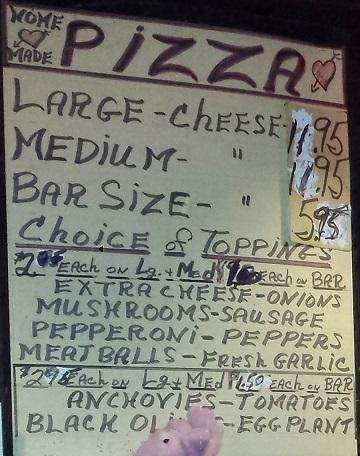 HOME MADE PIZZA
LARGE - CHEESE 11.95
MEDIUM - " 11.95
BAR SIZE - " 5.95
CHOICE of TOPPINGS
EACH ON LG. + MED EACH ON BAR
EXTRA CHEESE - ONIONS
MUSHROOMS - SAUSAGE
PEPPERONI - PEPPERS
MEATBALLS - FRESH GARLIC
$2.95 EACH ON LG + MED 1.50 EACH ON BAR
ANCHOVIES - TOMATOES
BLACK - EGGPLANT